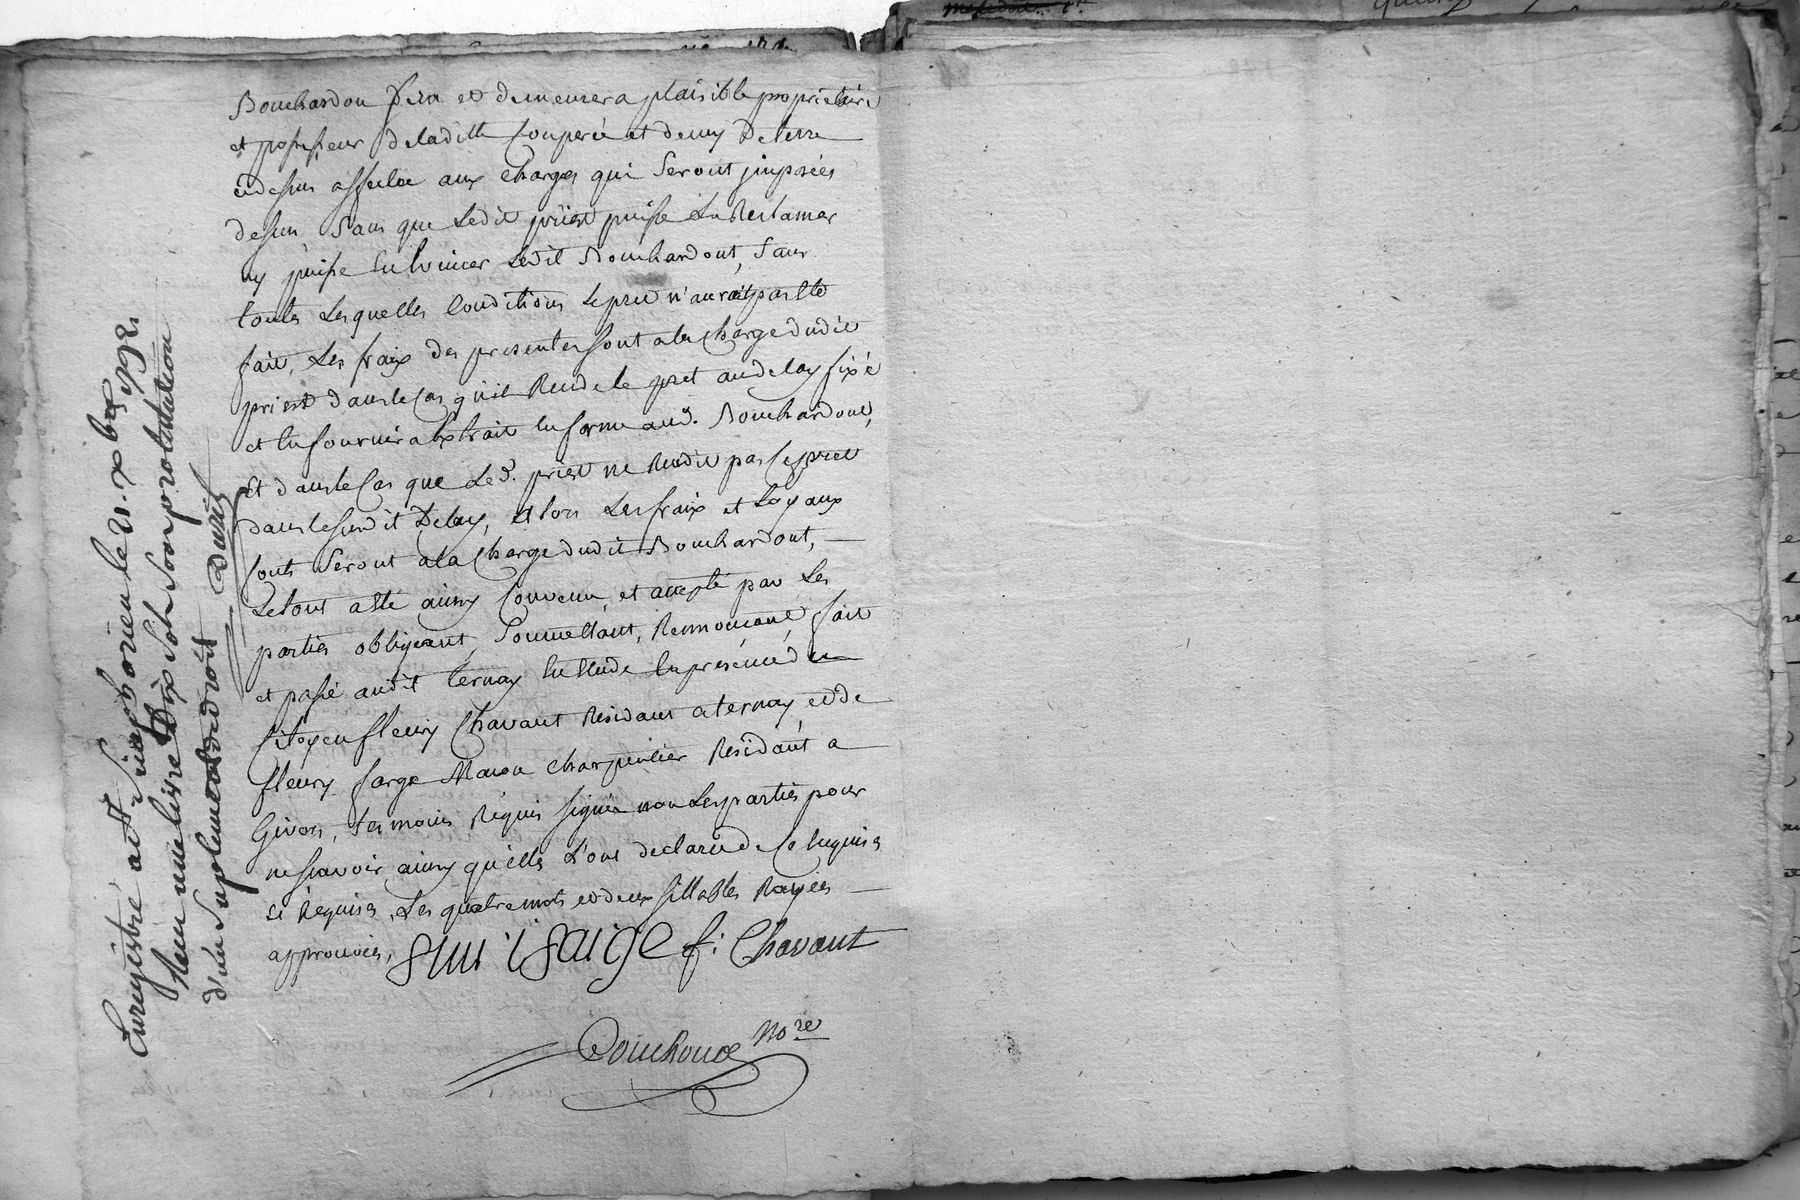 Bouchardon sera et demeurera plaisible proprietaire
et possesseur de laditte couperée et demy de terre
cydessus affectée aux charges qui seront jmposées
dessus sans que ledit priest puisse la reclamer
ny puisse Evincer ledit Bouchardont, sans
toutes lesquelles conditions le pret n'auroit pas Eté
fait, les fraix des presentes sont ala charge dudit
priest dans le cas qu'il Rende le pret au delay fixé
et En fournira Extrait En forme aud. Bouchardont,
Et dans le cas que led. priest ne Rendit pas le pret
dans le susdit Delay, alors les fraix et loyaux
couts seront ala charge dudit Bouchardont, —
Le tout a Eté ainsy convenu et accepté par les
parties obligeant, soumettant, Renonceant, fait
et passé audit ternay En Etude En présence du
citoyen fleury Chavant Résidant a ternay et de
fleury farge Maron charpentier Résidant a
Givors, temoins Requis signés non les parties pour
ne scavoir ainsy qu'elles l'ont declaré de ce Enquises
et Requises, Les quatre mots et deux sillables Rayées —
approuvés,
f: Chavant
No.re
Enregistré a St Simphorien le 21. xbre 1792.
Reçu une livre dix sols son protestation
d'un suplement de droit